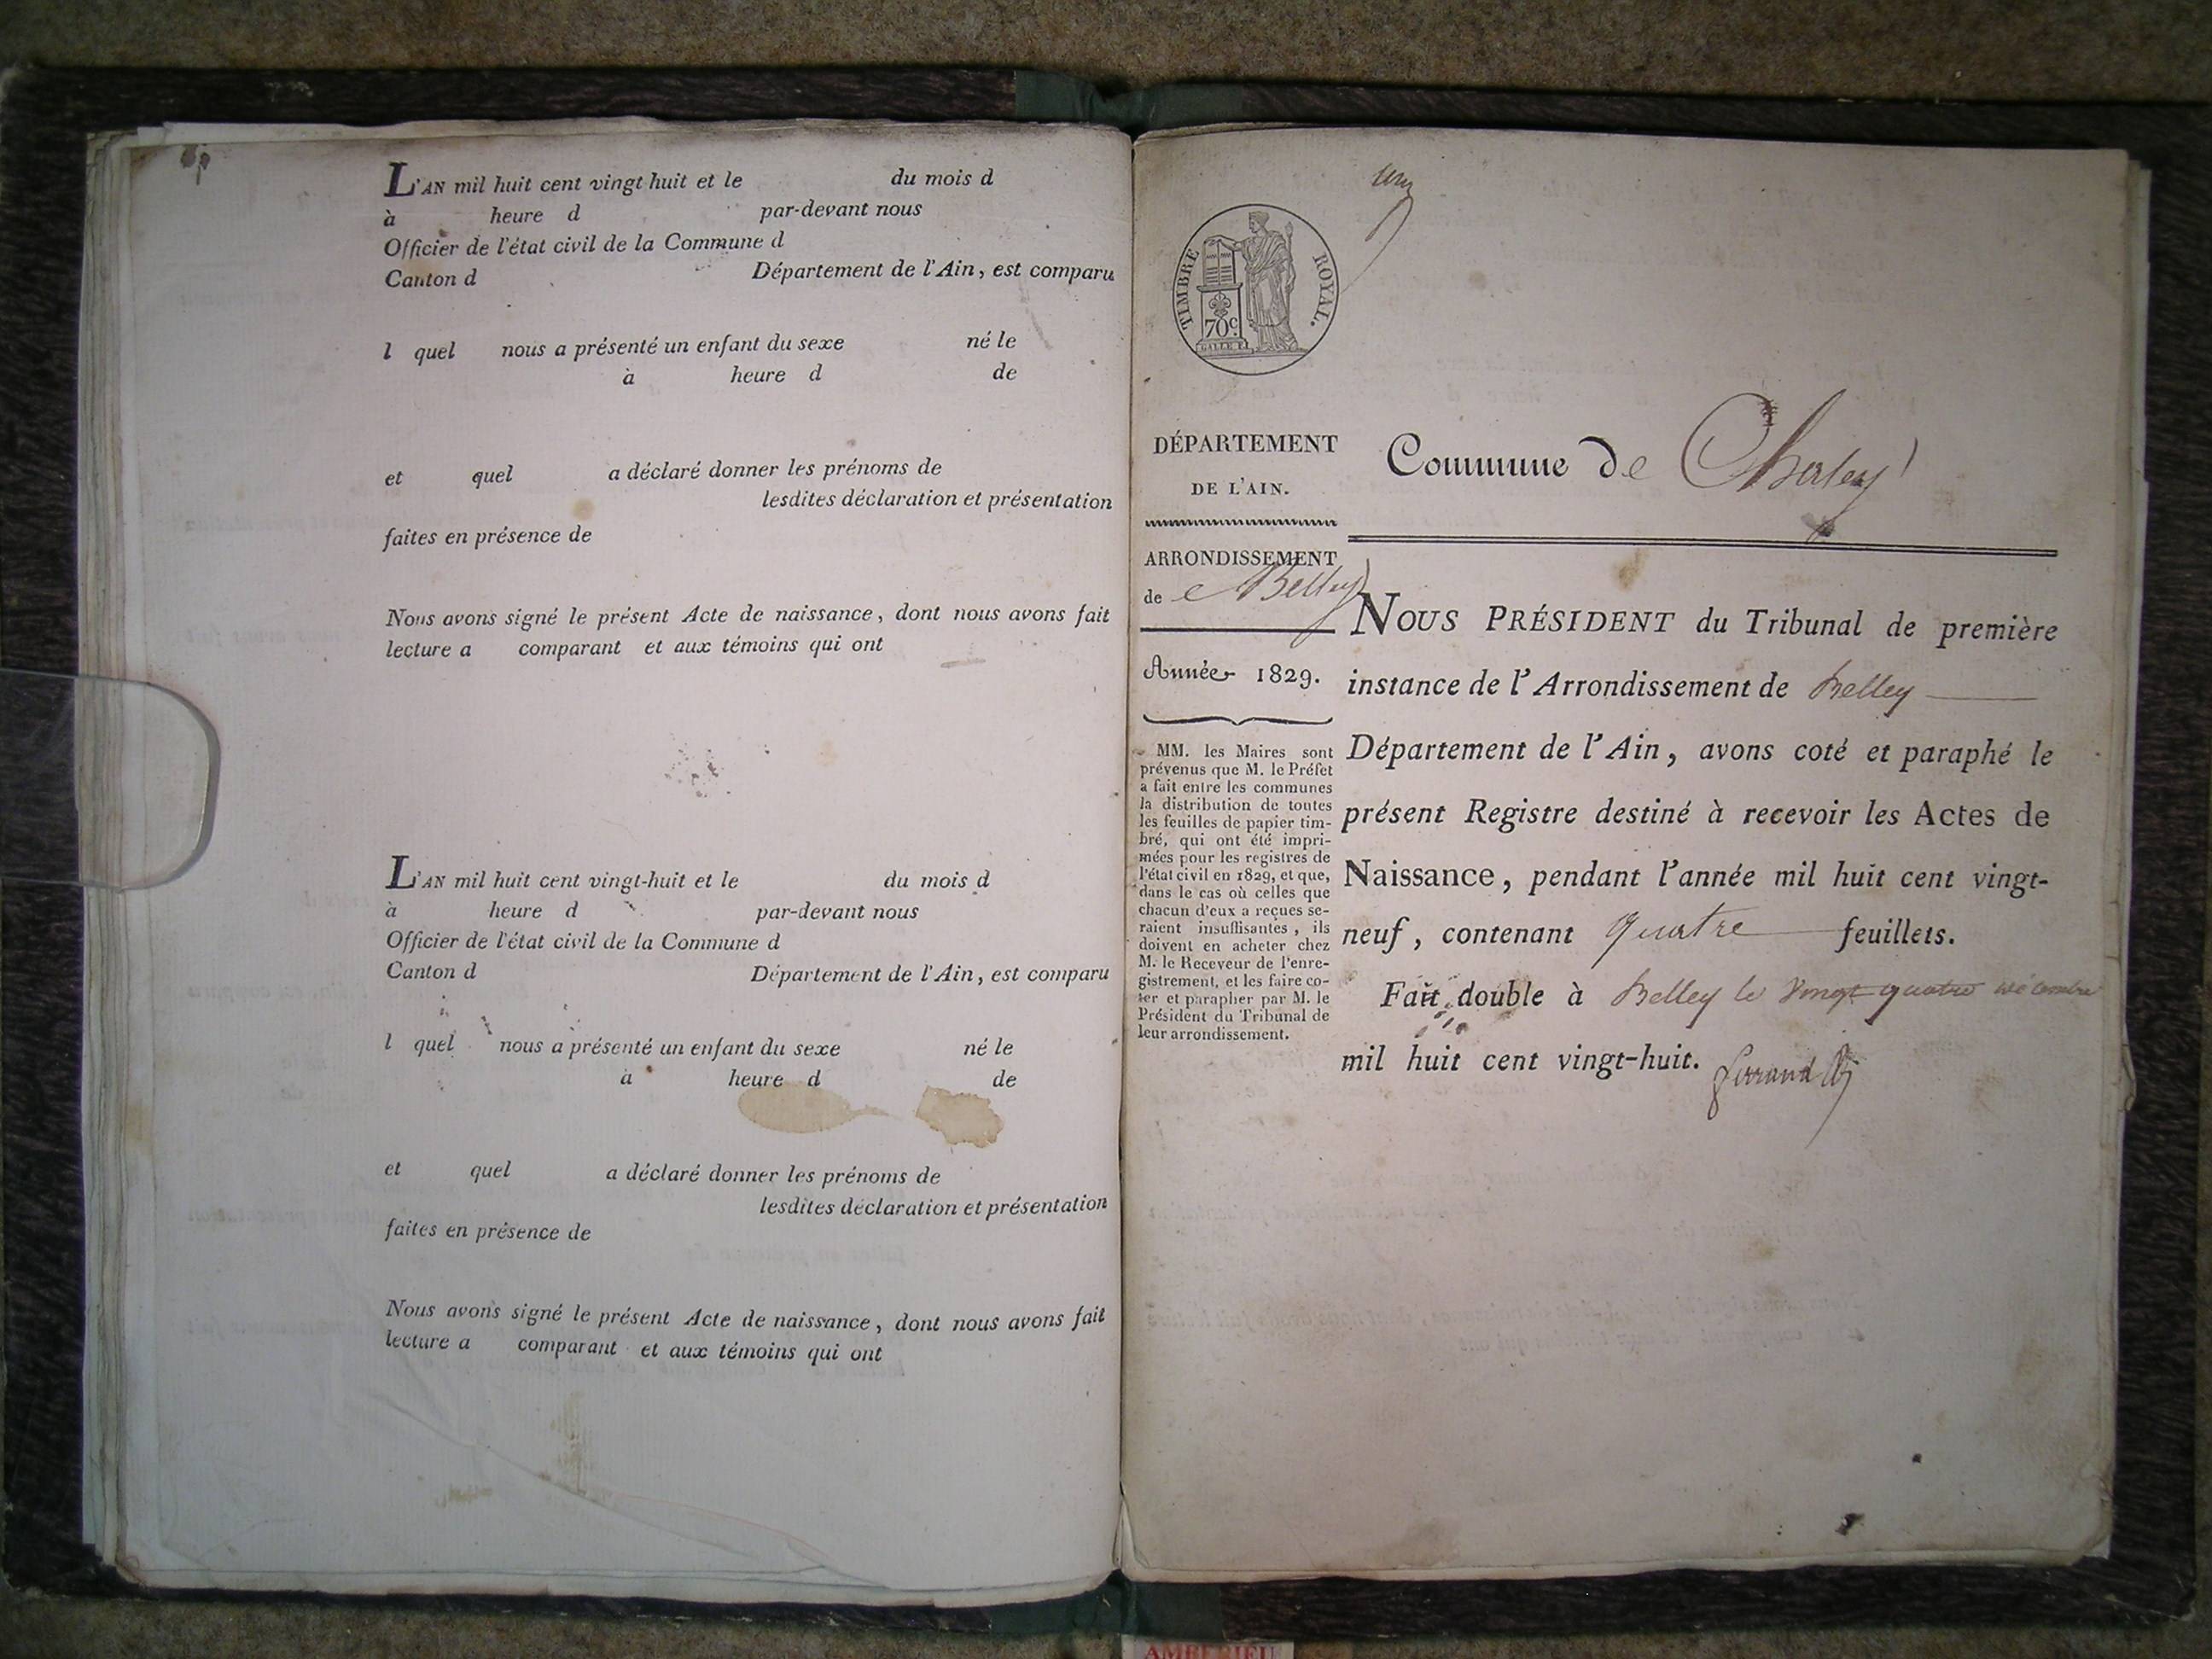 L'AN mil huit cent vingt huit et le du mois d
à heure d par-devant nous
Officier de l'état civil de la Commune d
Canton d Département de l'Ain, est comparu
l quel nous a présenté un enfant du sexe né le
à heure d de
et quel a déclaré donner les prénoms de
lesdites déclaration et présentation
faites en présence de
Nous avons signé le présent Acte de naissance, dont nous avons fait
lecture a comparant et aux témoins qui ont
L'AN mil huit cent vingt-huit et le du mois d
à heure d par-devant nous
Officier de l'état civil de la Commune d
Canton d Département de l'Ain, est comparu
l quel nous a présenté un enfant du sexe né le
à heure d de
et quel a déclaré donner les prénoms de
lesdites déclaration et présentation
faites en présence de
Nous avons signé le présent Acte de naissance, dont nous avons fait
lecture a comparant et aux témoins qui ont
TIMBRE ROYAL.
70c.
DÉPARTEMENT
DE L'AIN.
ARRONDISSEMENT
de Belley
Année 1829.
MM. les Maires sont
prévenus que M. le Préfet
a fait entre les communes
la distribution de toutes
les feuilles de papier tim-
bré, qui ont été impri-
mées pour les registres de
l'état civil en 1829, et que,
dans le cas où celles que
chacun d'eux a reçues se-
raient insuffisantes, ils
doivent en acheter chez
M. le Receveur de l'enre-
gistrement, et les faire co-
ter et parapher par M. le
Président du Tribunal de
leur arrondissement.
Commune de
NOUS PRÉSIDENT du Tribunal de première
instance de l'Arrondissement de Belley
Département de l'Ain, avons coté et paraphé le
présent Registre destiné à recevoir les Actes de
Naissance, pendant l'année mil huit cent vingt-
neuf, contenant quatre feuillets.
Fait double à Belley le vingt quatre décembre
mil huit cent vingt-huit.
AMBERIEU